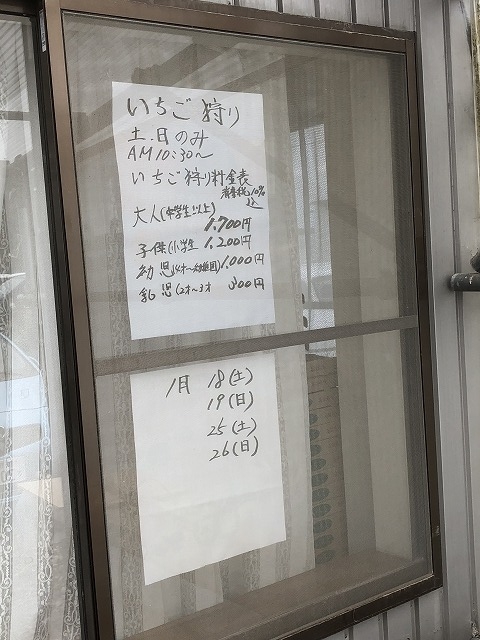 いちご狩り
土.日のみ
AM10:30〜
いちご狩り料金表
消費税10%
込
大人(中学生以上)
1,700円
子供(小学生 1,200円
幼児(4才〜幼稚園)1,000円
乳児(2才〜3才 800円
1月 18(土)
19(日)
25(土)
26(日)